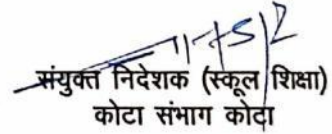 संयुक्त निदेशक (स्कूल शिक्षा)
कोटा संभाग कोटा